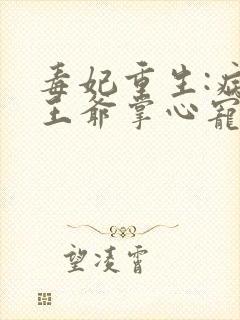 毒妃重生:病
王爷掌心宠
望凌霄